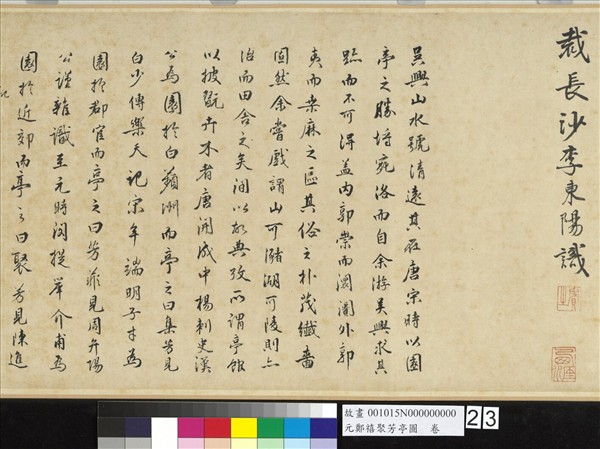 裁長沙李東陽識
吳興山水號清遠其在唐宋時以園
亭之勝埒宛洛而自余游吳興求其
跡而不可得蓋内郭崇而闤闠外郭
夷而桒麻之區其俗之朴茂纎嗇
固然余嘗戲謂山可瀦湖可陵則亦
治而田舍之矣間以故典攷所謂亭館
以披翫卉木者唐開成中楊刺史漢
公為園於白蘋洲而亭之曰集芳見
白少傅樂天記宋牟端明子才為
園於郡宦而亭之曰芳菲見周弁陽
公謹雜識至元時閔提舉介甫為
園於近郊而亭之曰聚芳見陳進
記
故畫 001015N000000000
元鄭禧聚芳亭圖 卷
23